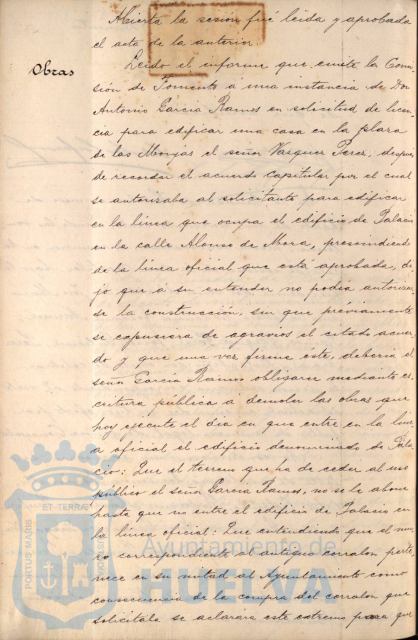 Abierta la sesión fué leida y aprobada
el acta de la anterior.
Obras
Leido el informe que emite la Comi-
sión de Fomento á una instancia de Don
Antonio García Ramos en solicitud de licen-
cia para edificar una casa en la plaza
de las Monjas el señor Vazquez Perez, despues
de recordar el acuerdo Capitular por el cual
se autorizaba al solicitante para edificar
en la linea que ocupa el edificio de Palacio
en la calle Alonso de Mora, prescindiendo
de la linea oficial que está aprobada, di-
jo que á su entender no podia autorizar
se la construcción, sin que préviamente
se expusiera de agravios el citado acuer
do y que una vez firme éste, deberia el
señor García Ramos obligarse mediante es
critura pública á demoler las obras que
hoy ejecute el dia en que entre en la line
a oficial el edificio denominado de Pala
cio: Que el terreno que ha de ceder al uso
público el señor García Ramos, no se le abone
hasta que no entre el edificio de Palacio en
la linea oficial: Que entendiendo que el mu
ro correspondiente al antiguo corralon perte
nece en su mitad al Ayuntamiento como
consecuencia de la compra del corralon que
solicitaba se aclarara este extremo para que
PORTUS MARIS
ET TERRAE
Ayuntamiento de
HUELVA